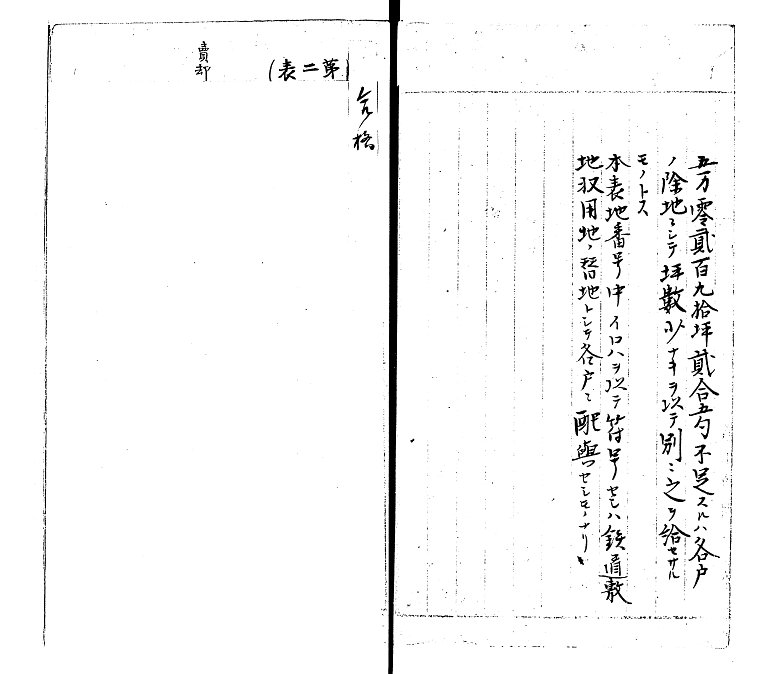 五万零貳百九拾坪貳合五勺不足スルハ各戸
ノ除地ニシテ坪數少ナキヲ以テ別ニ之ヲ給セサル
モノトス
本表地番号中イロハヲ以テ符号セシハ鉄道敷
地収用地ノ替地トシテ各戸ニ配與セシモノナリ
合格
(第二表)
賣却